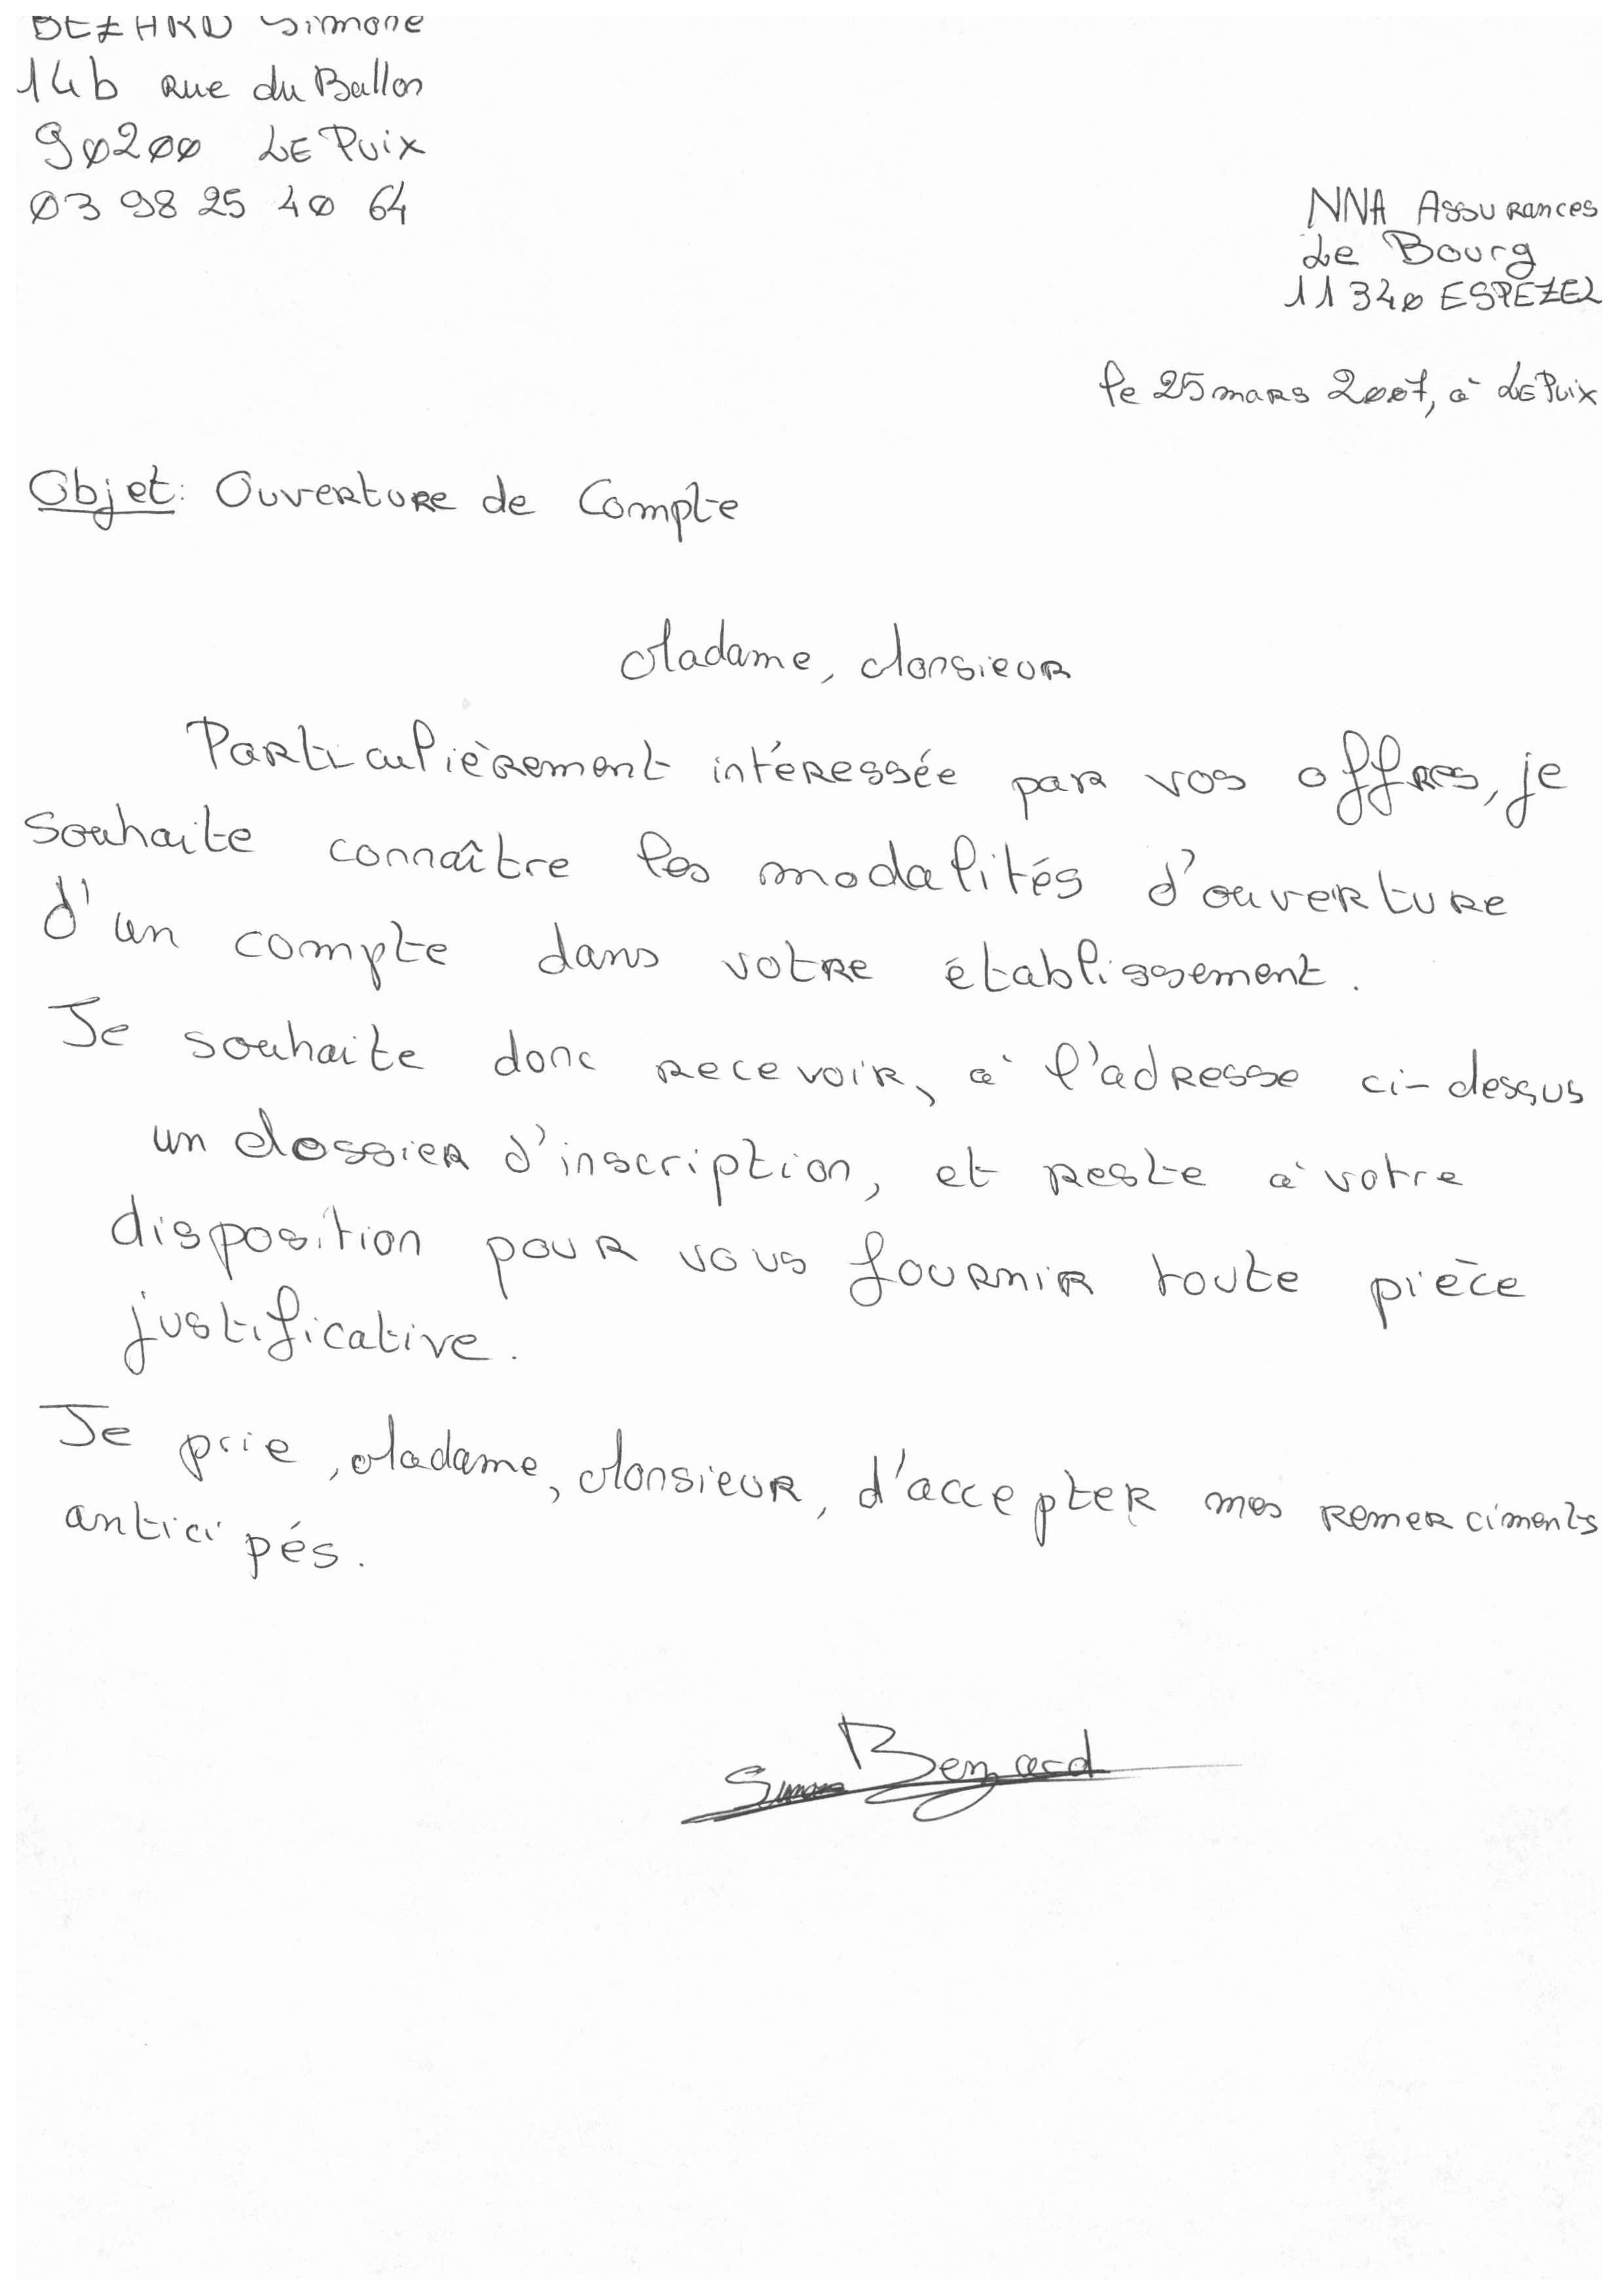 BEZARD Simone
14b Rue du Ballon
90200 LE Puix
03 98 25 40 64
NNA Assurances
Le Bourg
11340 ESPEZEL
le 25 mars 2007, à LE Puix
Objet: Ouverture de Compte
Madame, Monsieur
Particulièrement intéressée par vos offres, je
souhaite connaître les modalités d'ouverture
d'un compte dans votre établissement.
Je souhaite donc recevoir, à l'adresse ci-dessus
un dossier d'inscription, et reste à votre
disposition pour vous fournir toute pièce
justificative.
Je prie, Madame, Monsieur, d'accepter mes remerciments
anticipés.
Simone Bezard